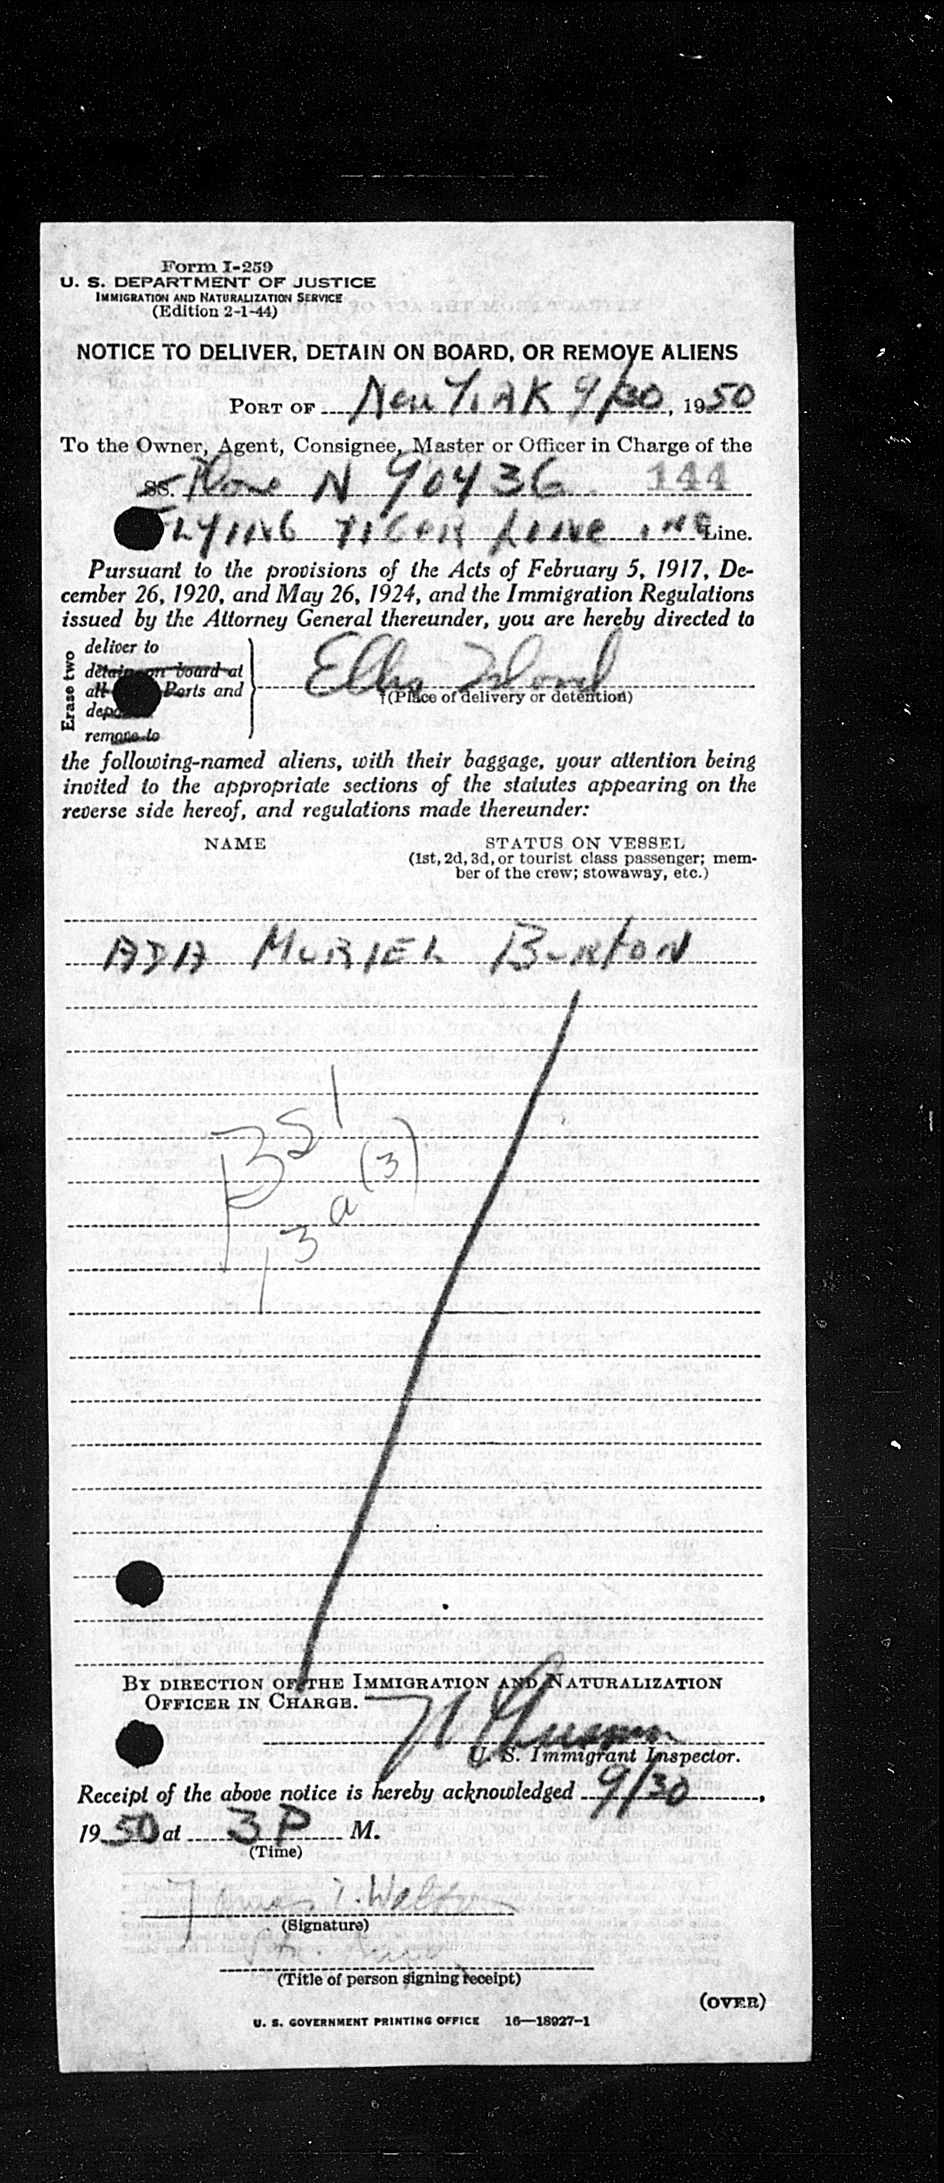 Form I-259
U. S. DEPARTMENT OF JUSTICE
IMMIGRATION AND NATURALIZATION SERVICE
(Edition 2-1-44)
NOTICE TO DELIVER, DETAIN ON BOARD, OR REMOVE ALIENS
PORT OF New York 9/30, 1950
To the Owner, Agent, Consignee, Master or Officer in Charge of the
SS. Plane N 90436 144
FLYING TIGER LINE INC Line.
Pursuant to the provisions of the Acts of February 5, 1917, De-
cember 26, 1920, and May 26, 1924, and the Immigration Regulations
issued by the Attorney General thereunder, you are hereby directed to
Erase two
deliver to
detain on board at
all Ports and
remove to
Ellis Island
(Place of delivery or detention)
the following-named aliens, with their baggage, your attention being
invited to the appropriate sections of the statutes appearing on the
reverse side hereof, and regulations made thereunder:
NAME STATUS ON VESSEL
(1st, 2d, 3d, or tourist class passenger; mem-
ber of the crew; stowaway, etc.)
ADA MURIEL BURTON
BSI
13a(3)
BY DIRECTION OF THE IMMIGRATION AND NATURALIZATION
OFFICER IN CHARGE.
U. S. Immigrant Inspector.
Receipt of the above notice is hereby acknowledged 9/30,
1950 at 3 P M.
(Time)
James T.
(Signature)
(Title of person signing receipt)
(OVER)
U. S. GOVERNMENT PRINTING OFFICE 16—18927-1